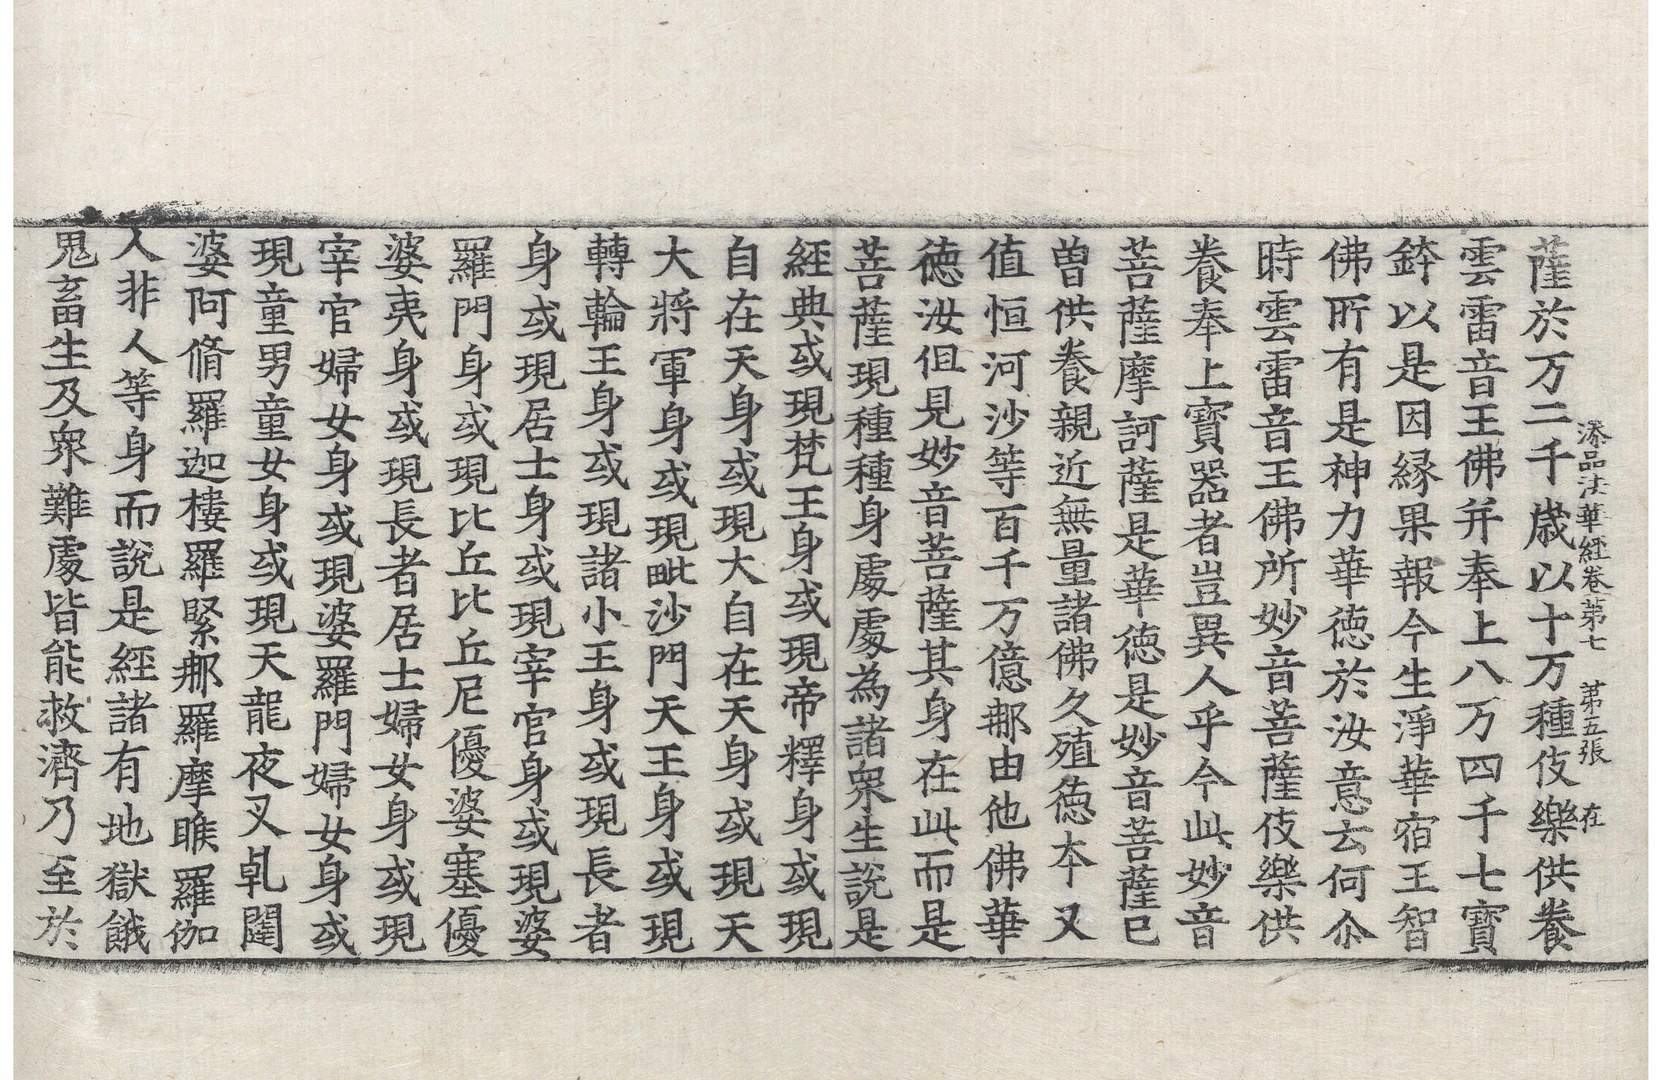 添品法華經卷第七　第五張　在
薩於万二千歲以十万種伎樂供養
雲雷音王佛并奉上八万四千七寶
鉢以是因緣果報今生淨華宿王智
佛所有是神力華德於汝意云何尒
時雲雷音王佛所妙音菩薩伎樂供
養奉上寶器者豈異人乎今此妙音
菩薩摩訶薩是華德是妙音菩薩已
曾供養親近無量諸佛久殖德本又
值恒河沙等百千万億那由他佛華
德汝但見妙音菩薩其身在此而是
菩薩現種種身處處為諸衆生說是
經典或現梵王身或現帝釋身或現
自在天身或現大自在天身或現天
大將軍身或現毗沙門天王身或現
轉輪王身或現諸小王身或現長者
身或現居士身或現宰官身或現婆
羅門身或現比丘比丘尼優婆塞優
婆夷身或現長者居士婦女身或現
宰官婦女身或現婆羅門婦女身或
現童男童女身或現天龍夜叉乹闥
婆阿脩羅迦樓羅緊那羅摩睺羅伽
人非人等身而說是經諸有地獄餓
鬼畜生及衆難處皆能救濟乃至於